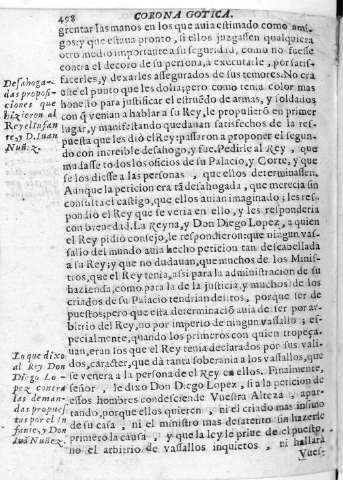 498
CORONA GOTICA.
grentar las manos en los que auia estimado como ami-
gos; y que estaua pronto, si ellos juzgassen qualquiera
otro medio importante a su seguridad, como no fuesse
contra el decoro de su persona, a executarle, por satis-
facerles, y dexarles assegurados de sus temores. No era
este el punto que les dolia; pero como tenia color mas
honesto para justificar el estruẽdo de armas, y soldados
con q̃ venian a hablar a su Rey, le propusierõ en primer
lugar, y manifestando quedauan satisfechos de la res-
puesta que les diò el Rey: passaron a proponer el segun-
do con increible desahogo, y fue. Pedirle al Rey, que
mudasse todos los oficios de su Palacio, y Corte, y que
se los diesse a las personas, que ellos determinassen.
Aunque la peticion era tã desahogada, que merecia sin
consulta el castigo, que ellos auian imaginado; les res-
pondiò el Rey que se veria en ello, y les responderia
con breuedad. La Reyna, y Don Diego Lopez, a quien
el Rey pidiò consejo, le respondieron que ningun vas-
sallo del mundo auia hecho peticion tan descabellada
a su Rey; y que no dudauan, que muchos de los Minis-
tros, que el Rey tenia, assi para la administracion de su
hazienda, como para la de la justicia, y muchos de los
criados de su Palacio tendrian delitos, porque ser de
puestos; pero que esta determinaciõ auia de ser por ar-
bitrio del Rey, no por imperio de ningun vassallo; es-
pecialmente, quando los primeros con quien tropeça-
uan, eran los que el Rey tenia declarados por sus vali-
dos, caracter, que dà tanta soberania a los vassallos, que
se venera a la persona de el Rey en ellos. Finalmente,
señor, le dixo Don Diego Lopez, si a la peticion de
estos hombres condesciende Vuestra Alteza, apar-
tando, porque ellos quieren; ni el criado mas infimo
de su casa, ni el ministro mas desatento sin hazerle
primero la causa, y que la ley le priue de el puesto,
no el arbitrio de vassallos inquietos, ni hallarà
Vues-
Desahoga-
das proposi-
ciones que
hizieron al
Rey el Infan
te, y D. Iuan
Nuñez.
Lo que dixo
al Rey Don
Diego Lo-
pez contra
las deman-
das propues
tas por el in
fante, y Don
Iuã Nuñez.